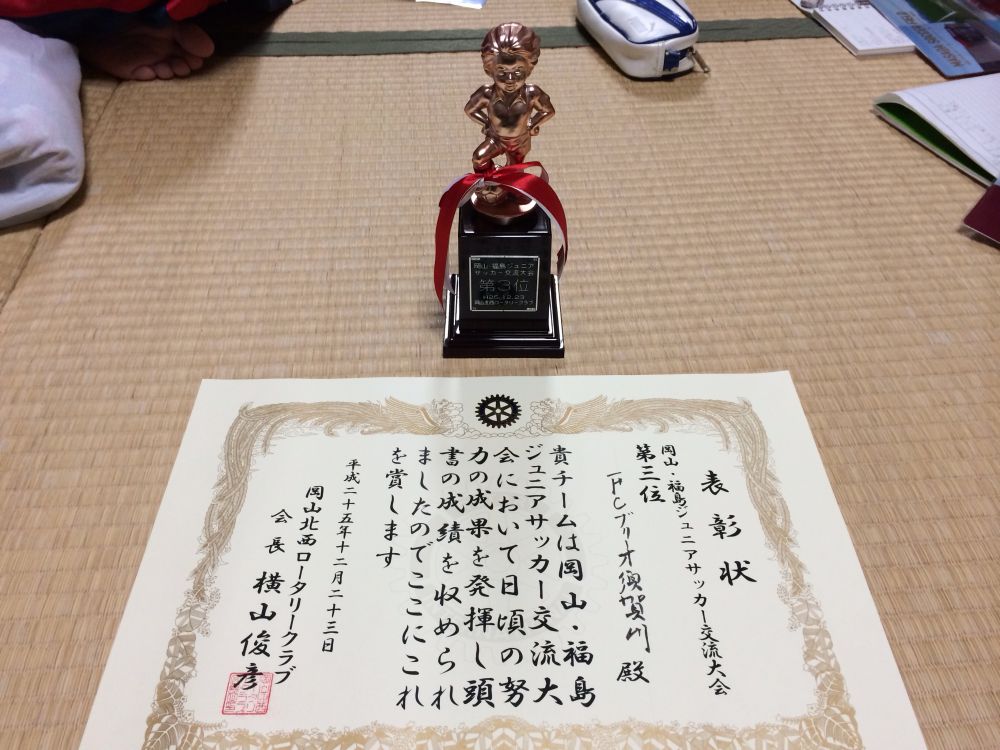 岡山・福島ジュニア
サッカー交流大会
第3位
H25.12.23
岡山北西ロータリークラブ
表彰状
岡山・福島ジュニアサッカー交流大会
第三位
FCブリーオ須賀川 殿
貴チームは岡山・福島
ジュニアサッカー交流大
会において日頃の努
力の成果を発揮し頭
書の成績を収められ
ましたのでここにこれ
を賞します
平成二十五年十二月二十三日
岡山北西ロータリークラブ
会長 横山俊彦